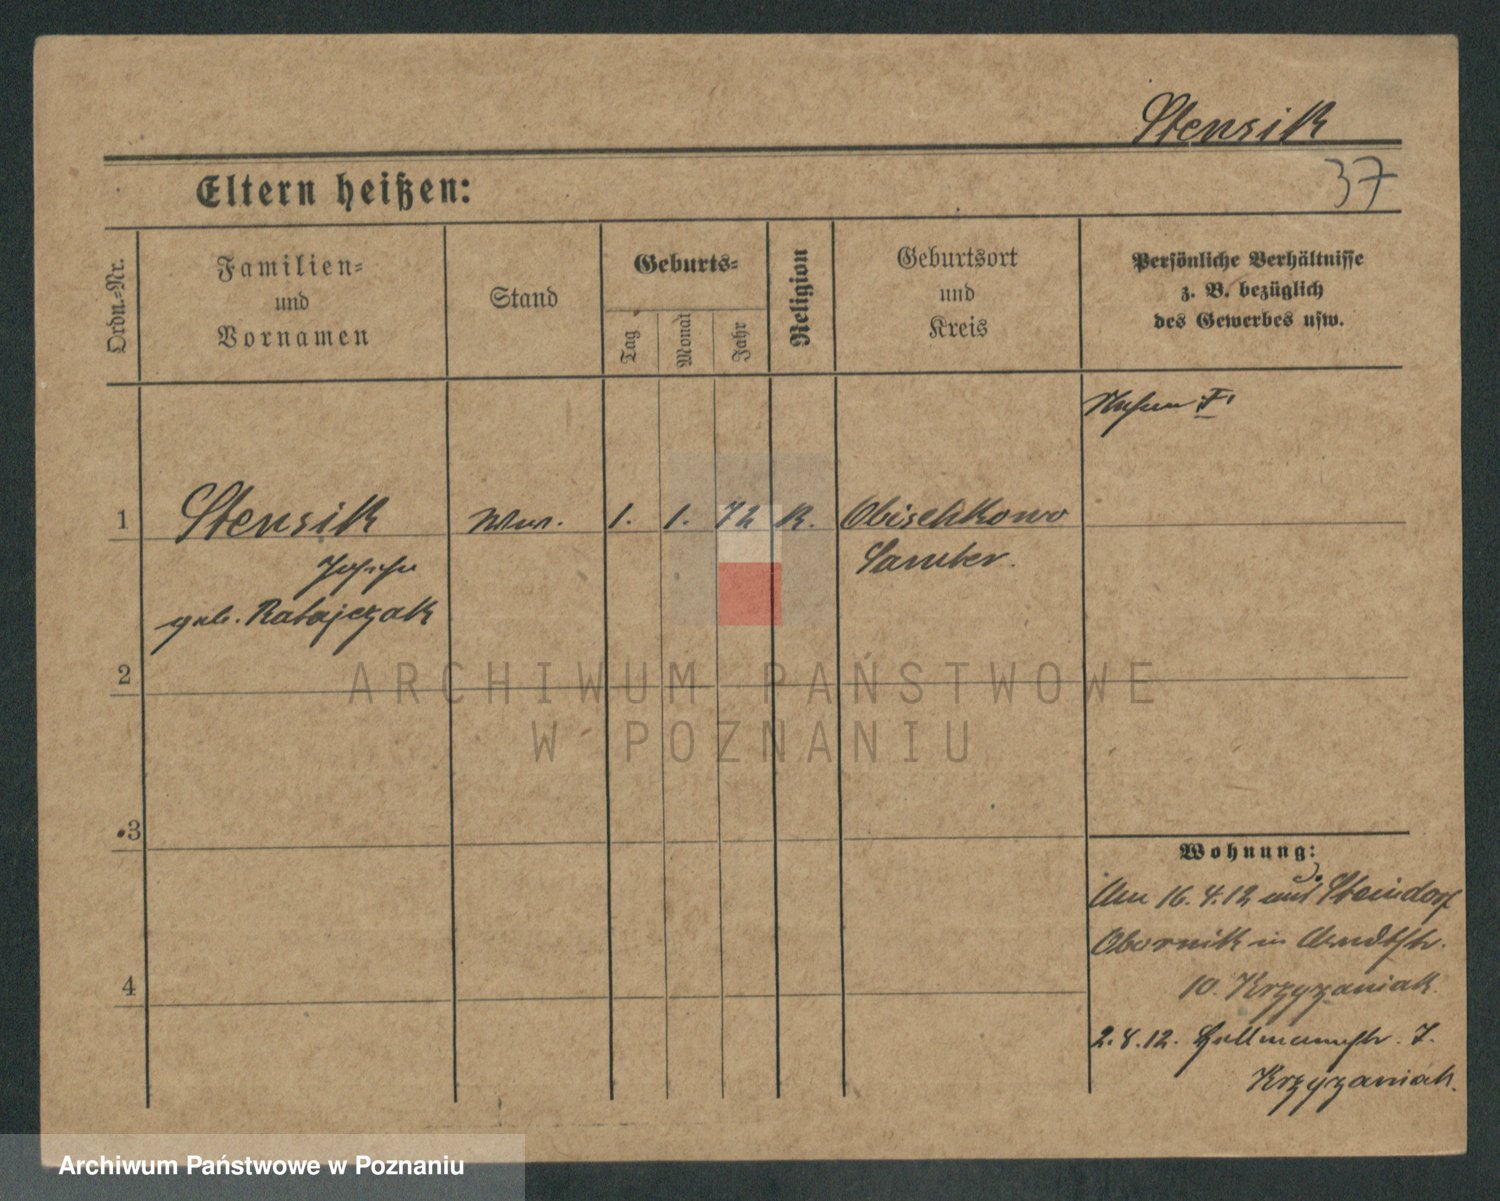 Stensik
37
Eltern heißen:
Ordn.-Nr.
Familien-
und
Vornamen
Stand
Geburts-
Tag
Monat
Jahr
Religion
Geburtsort
und
Kreis
Persönliche Verhältnisse
z. B. bezüglich
des Gewerbes usw.
1 Stensik Ww. 1. 1. 72 K. Obischkowo
Samter.
geb. Ratajczak
2
ARCHIWUM PAŃSTWOWE
W POZNANIU
3
Wohnung:
Am 16.4.12 aus Steindorf
Obornik in Arndtstr.
4
10. Krzyzaniak.
2.8.12. Hellmannstr. 7.
Krzyzaniak.
Archiwum Państwowe w Poznaniu